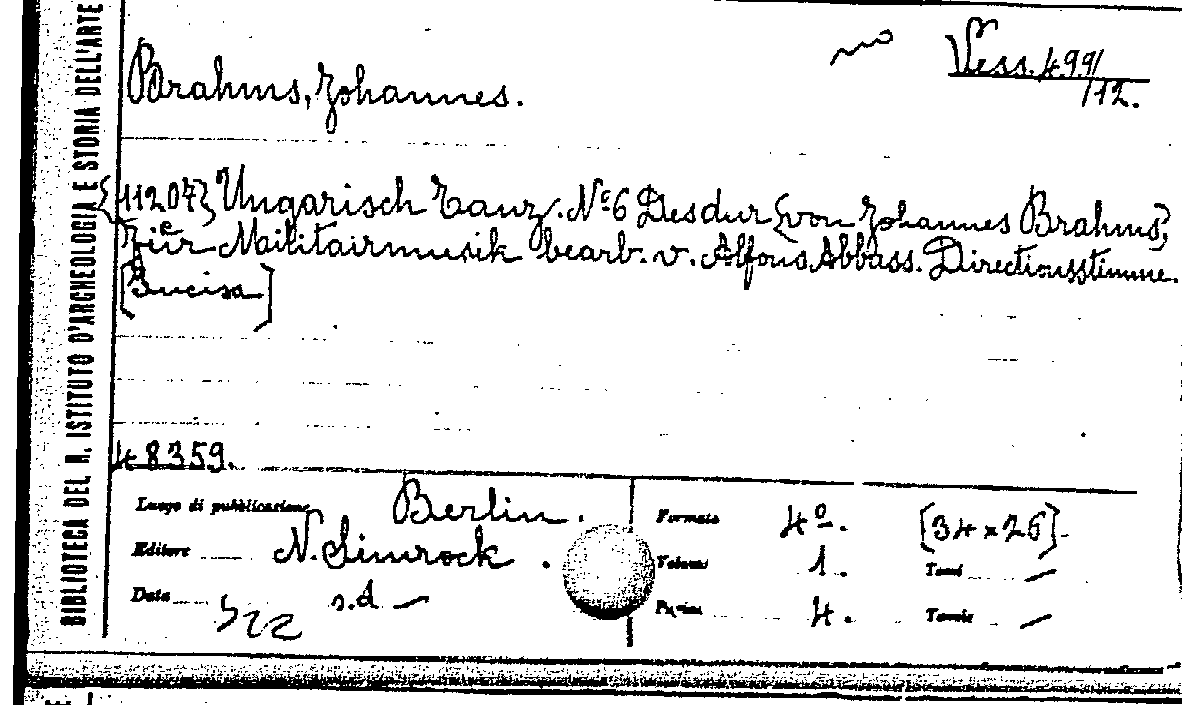 BIBLIOTECA DEL R. ISTITUTO D'ARCHEOLOGIA E STORIA DELL'ARTE
Vess. 499/
/12.
Brahms, Johannes.
{11207} Ungarisch Tanz. Nº 6 Desdur {von Johannes Brahms,}
Für Militairmusik bearb. v. Alfons Abbass. Directionsstimme.
[Incisa]
48359.
Luogo di pubblicazione Berlin.
Editore N. Simrock.
Data s.d. —
522
Formato 4º. [34 x 26].
Volumi 1. Tomi —
Pagine 4. Tavole —